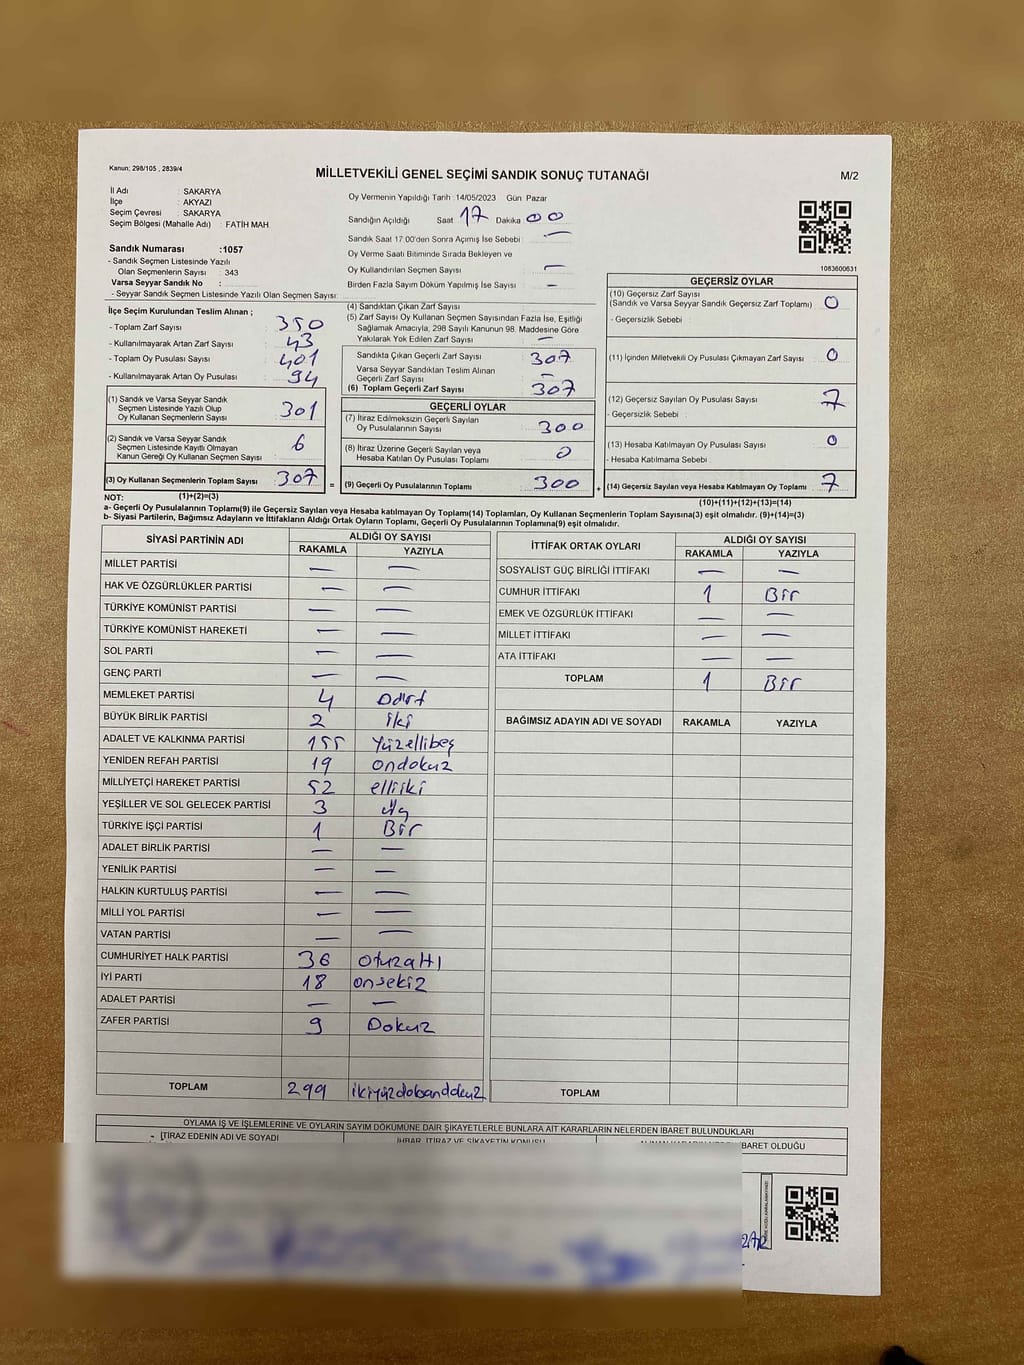 Kanun; 298/105 , 2839/4
MİLLETVEKİLİ GENEL SEÇİMİ SANDIK SONUÇ TUTANAĞI
M/2
İl Adı : SAKARYA
İlçe : AKYAZI
Seçim Çevresi : SAKARYA
Seçim Bölgesi (Mahalle Adı) : FATİH MAH
Sandık Numarası :1057
- Sandık Seçmen Listesinde Yazılı
Olan Seçmenlerin Sayısı : 343
Varsa Seyyar Sandık No :
- Seyyar Sandık Seçmen Listesinde Yazılı Olan Seçmen Sayısı:
Oy Vermenin Yapıldığı Tarih :14/05/2023 Gün Pazar
Sandığın Açıldığı Saat 17 Dakika 00
Sandık Saat 17.00'den Sonra Açımış İse Sebebi : —
Oy Verme Saati Bitiminde Sırada Bekleyen ve
Oy Kullandırılan Seçmen Sayısı : —
Birden Fazla Sayım Döküm Yapılmış İse Sayısı : —
1083600631
İlçe Seçim Kurulundan Teslim Alınan ;
- Toplam Zarf Sayısı : 350
- Kullanılmayarak Artan Zarf Sayısı : 43
- Toplam Oy Pusulası Sayısı : 401
- Kullanılmayarak Artan Oy Pusulası : 94
(1) Sandık ve Varsa Seyyar Sandık
Seçmen Listesinde Yazılı Olup
Oy Kullanan Seçmenlerin Sayısı : 301
(2) Sandık ve Varsa Seyyar Sandık
Seçmen Listesinde Kayıtlı Olmayan
Kanun Gereği Oy Kullanan Seçmen Sayısı : 6
(3) Oy Kullanan Seçmenlerin Toplam Sayısı : 307
(4) Sandıktan Çıkan Zarf Sayısı :
(5) Zarf Sayısı Oy Kullanan Seçmen Sayısından Fazla İse, Eşitliği
Sağlamak Amacıyla, 298 Sayılı Kanunun 98. Maddesine Göre
Yakılarak Yok Edilen Zarf Sayısı : —
Sandıkta Çıkan Geçerli Zarf Sayısı : 307
Varsa Seyyar Sandıktan Teslim Alınan
Geçerli Zarf Sayısı : —
(6) Toplam Geçerli Zarf Sayısı : 307
GEÇERLİ OYLAR
(7) İtiraz Edilmeksizin Geçerli Sayılan
Oy Pusulalarının Sayısı : 300
(8) İtiraz Üzerine Geçerli Sayılan veya
Hesaba Katılan Oy Pusulası Toplamı : 0
= (9) Geçerli Oy Pusulalarının Toplamı : 300
GEÇERSİZ OYLAR
(10) Geçersiz Zarf Sayısı
(Sandık ve Varsa Seyyar Sandık Geçersiz Zarf Toplamı) : 0
- Geçersizlik Sebebi :
(11) İçinden Milletvekili Oy Pusulası Çıkmayan Zarf Sayısı : 0
(12) Geçersiz Sayılan Oy Pusulası Sayısı : 7
- Geçersizlik Sebebi :
(13) Hesaba Katılmayan Oy Pusulası Sayısı : 0
- Hesaba Katılmama Sebebi :
+ (14) Geçersiz Sayılan veya Hesaba Katılmayan Oy Toplamı : 7
NOT: (1)+(2)=(3)
(10)+(11)+(12)+(13)=(14)
a- Geçerli Oy Pusulalarının Toplamı(9) ile Geçersiz Sayılan veya Hesaba katılmayan Oy Toplamı(14) Toplamları, Oy Kullanan Seçmenlerin Toplam Sayısına(3) eşit olmalıdır. (9)+(14)=(3)
b- Siyasi Partilerin, Bağımsız Adayların ve İttifakların Aldığı Ortak Oyların Toplamı, Geçerli Oy Pusulalarının Toplamına(9) eşit olmalıdır.
SİYASİ PARTİNİN ADI ALDIĞI OY SAYISI
RAKAMLA YAZIYLA
MİLLET PARTİSİ — —
HAK VE ÖZGÜRLÜKLER PARTİSİ — —
TÜRKİYE KOMÜNİST PARTİSİ — —
TÜRKİYE KOMÜNİST HAREKETİ — —
SOL PARTİ — —
GENÇ PARTİ — —
MEMLEKET PARTİSİ 4 Dört
BÜYÜK BİRLİK PARTİSİ 2 iki
ADALET VE KALKINMA PARTİSİ 155 Yüzellibeş
YENİDEN REFAH PARTİSİ 19 ondokuz
MİLLİYETÇİ HAREKET PARTİSİ 52 elliiki
YEŞİLLER VE SOL GELECEK PARTİSİ 3 üç
TÜRKİYE İŞÇİ PARTİSİ 1 Bir
ADALET BİRLİK PARTİSİ — —
YENİLİK PARTİSİ — —
HALKIN KURTULUŞ PARTİSİ — —
MİLLİ YOL PARTİSİ — —
VATAN PARTİSİ — —
CUMHURİYET HALK PARTİSİ 36 otuzaltı
İYİ PARTİ 18 onsekiz
ADALET PARTİSİ — —
ZAFER PARTİSİ 9 Dokuz
TOPLAM 299 ikiyüzdoksandokuz
İTTİFAK ORTAK OYLARI ALDIĞI OY SAYISI
RAKAMLA YAZIYLA
SOSYALİST GÜÇ BİRLİĞİ İTTİFAKI — —
CUMHUR İTTİFAKI 1 Bir
EMEK VE ÖZGÜRLÜK İTTİFAKI — —
MİLLET İTTİFAKI — —
ATA İTTİFAKI — —
TOPLAM 1 Bir
BAĞIMSIZ ADAYIN ADI VE SOYADI RAKAMLA YAZIYLA
TOPLAM
OYLAMA İŞ VE İŞLEMLERİNE VE OYLARIN SAYIM DÖKÜMÜNE DAİR ŞİKAYETLERLE BUNLARA AİT KARARLARIN NELERDEN İBARET BULUNDUKLARI
İTİRAZ EDENİN ADI VE SOYADI
İHBAR, İTİRAZ VE ŞİKAYETİN KONUSU
İBARET OLDUĞU